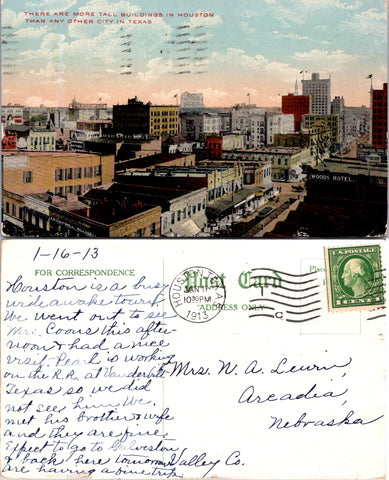 THERE ARE MORE TALL BUILDINGS IN HOUSTON
THAN ANY OTHER CITY IN TEXAS
WOODS HOTEL
1-16-13
FOR CORRESPONDENCE
Post Card
ADDRESS ONLY
HOUSTON, TEXAS
JAN 17
10 30 PM
1913
C
U.S. POSTAGE
1 CENT 1
Houston is a busy
wide awake town.
We went out to see
Mrs. Coons this after-
noon & had a nice
visit. Pearl is working
on the R.R. at Vanderbilt
Texas so we did
not see him. We
met his brother & wife
and they are fine.
Expect to go to Galveston
& back here tomorrow
are having a fine trip
Mrs. W. A.
Arcadia,
Nebraska
Valley Co.